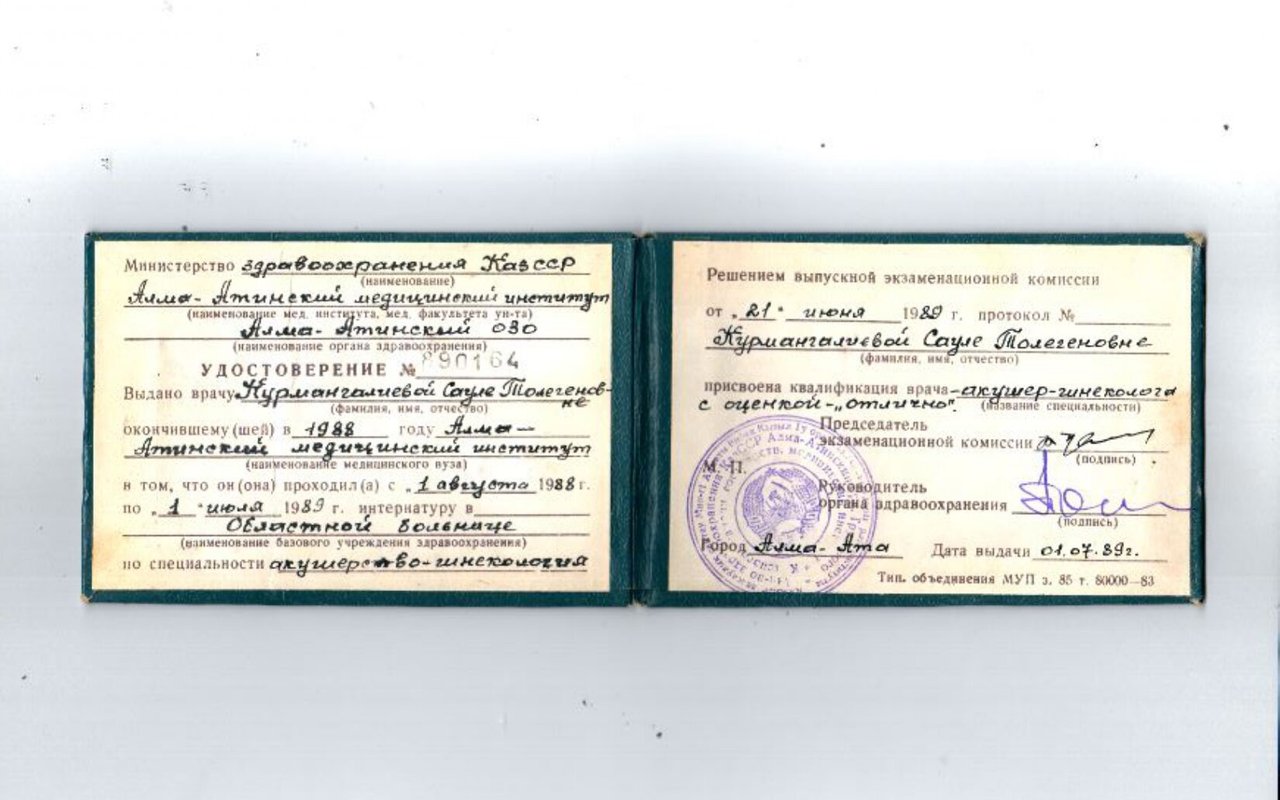 Министерство здравоохранения КазССР
(наименование)
Алма-Атинский медицинский институт
(наименование мед. института, мед. факультета ун-та)
Алма-Атинский ОЗО
(наименование органа здравоохранения)
УДОСТОВЕРЕНИЕ № 890164
Выдано врачу Курмангалиевой Сауле Толегенов-
не
(фамилия, имя, отчество)
окончившему (шей) в 1988 году Алма-
Атинский медицинский институт
(наименование медицинского вуза)
в том, что он(она) проходил(а) с „1 августа 1988 г.
по „1" июля 1989 г. интернатуру в
Областной больнице
(наименование базового учреждения здравоохранения)
по специальности акушерство-гинекология
Решением выпускной экзаменационной комиссии
от „21" июня 1989 г. протокол №
Курмангалиевой Сауле Толегеновне
(фамилия, имя, отчество)
присвоена квалификация врача-акушер-гинеколога
с оценкой-„отлично".
(название специальности)
Председатель
экзаменационной комиссии
(подпись)
М. П.
Руководитель
органа здравоохранения
(подпись)
Город Алма-Ата Дата выдачи 01.07.89г.
Тип. объединения МУП з. 85 т. 80000—83